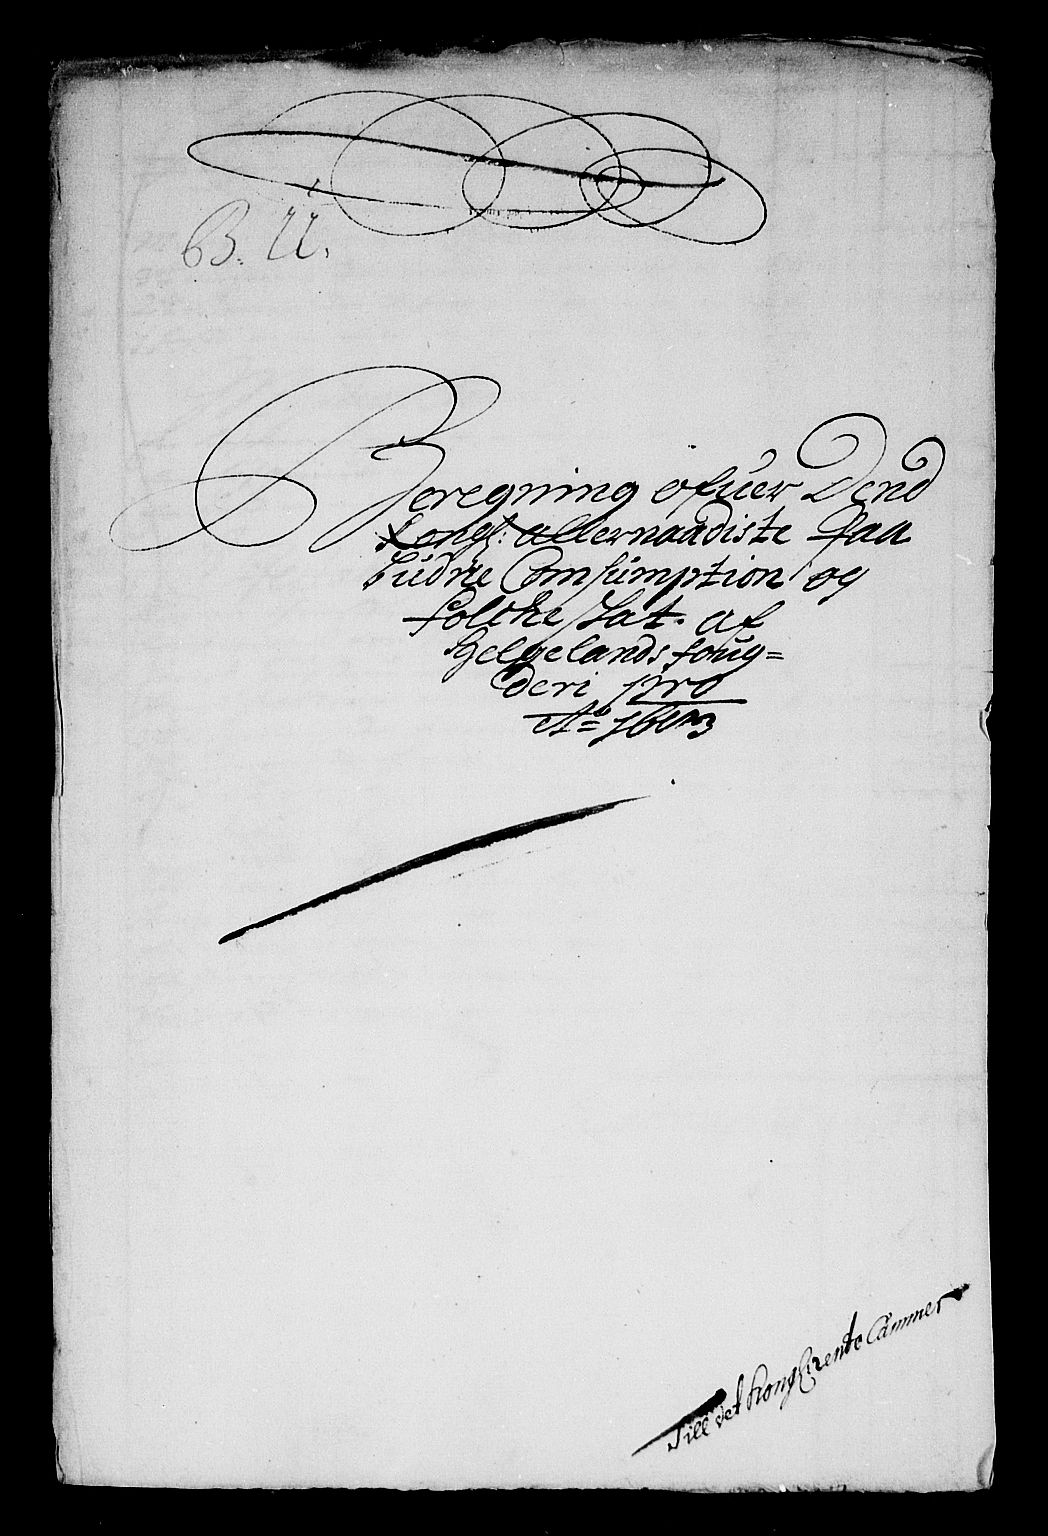 B. U.
Beregning ofuer Dend
Kongl: allernaadiste paa
budne Consumption og
folcke Skat. af
Helgelands foug=
deri pro
Ao
Till det Kongl: rente Cammer